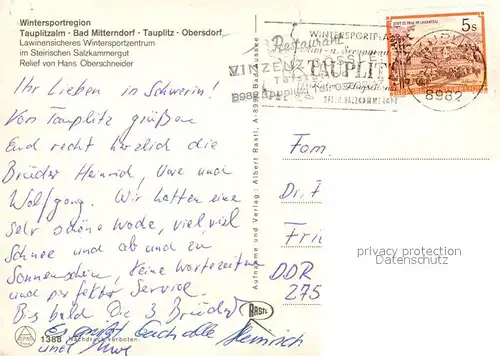 Wintersportregion
Tauplitzalm - Bad Mitterndorf - Tauplitz - Obersdorf
Lawinensicheres Wintersportzentrum
im Steirischen Salzkammergut
Relief von Hans Oberschneider
Ihr Lieben in Schwerin!
Von Tauplitz grüßen
Euch recht herzlich die
Brüder Heinrich, Uwe und
Wolfgang. Wir hatten eine
sehr schöne Woche, viel, viel
Schnee und ab und zu
Sonnenschein, keine Wartezeiten
und perfekter Service.
Bis bald Die 3 Brüder
Es grüßt Euch alle Heinrich
und Uwe
1388 Nachdruck verboten
RASTL
Aufnahme und Verlag: Albert Rastl, A-8990 Bad Aussee
Restaurant
WINTERSPORTPL
VINZENZ
TAUPLITZ
SALZKAMMERGUT
5s
STIFT ST. PAUL IM LAVANTTAL
8982
Fam.
Dr. F
Fri
DDR
275
privacy protection
Datenschutz